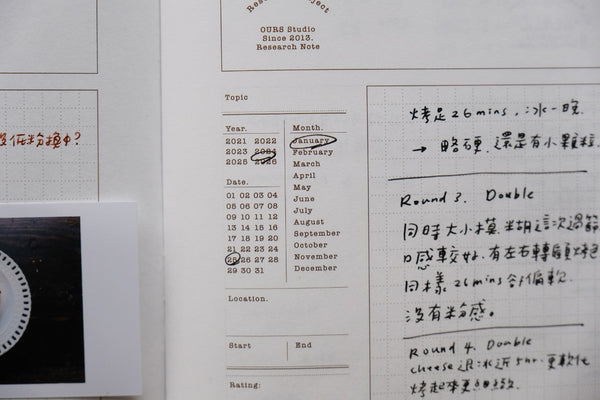 Research Project
OURS Studio
Since 2013.
Research Note
Topic
Year.
2021 2022
2023 2024
2025 2026
Month.
January
February
March
April
May
June
July
August
September
October
November
December
Date.
01 02 03 04
05 06 07 08
09 10 11 12
13 14 15 16
17 18 19 20
21 22 23 24
25 26 27 28
29 30 31
Location.
Start End
Rating:
烤足26mins,冰一晚.
→ 略硬.還是有小顆粒.
Round 3. Double
同時大小模.料糊這次過篩
口感較好.有左右轉
同樣26mins 偏軟.
沒有粉感。
Round 4. Double
cheese退冰近5hr.更軟化
烤起來更細緻.